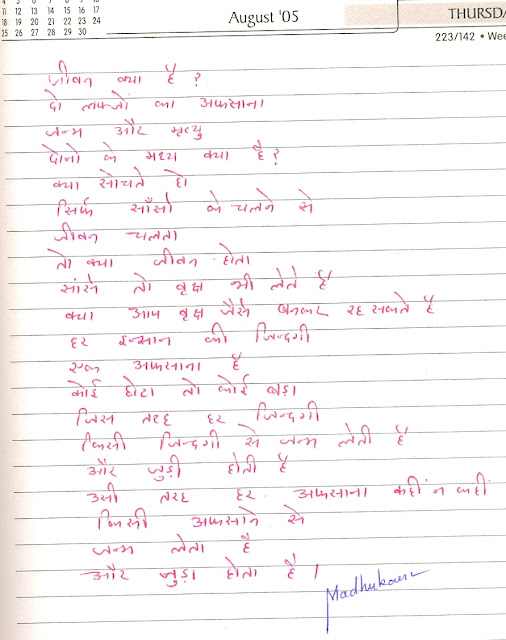 4 5 6 7 8 9 10
11 12 13 14 15 16 17
18 19 20 21 22 23 24
25 26 27 28 29 30
August '05
THURSDA
223/142 • Wee
जीवन क्या है ?
दो लफ्जों का अफसाना
जन्म और मृत्यु
दोनो के मध्य क्या है ?
क्या सोचते हो
सिर्फ साँसो के चलने से
जीवन चलता
तो क्या जीवन होता
सांसे तो वृक्ष भी लेते हैं
क्या आप वृक्ष जैसे बनकर रह सकते है
हर इन्सान की जिन्दगी
एक अफसाना है
कोई छोटा तो कोई बड़ा
जिस तरह हर जिन्दगी
किसी जिन्दगी से जन्म लेती है
और जुड़ी होती है
उसी तरह हर अफसाना कहीं न कहीं
किसी अफसाने से
जन्म लेता है
और जुड़ा होता है ।